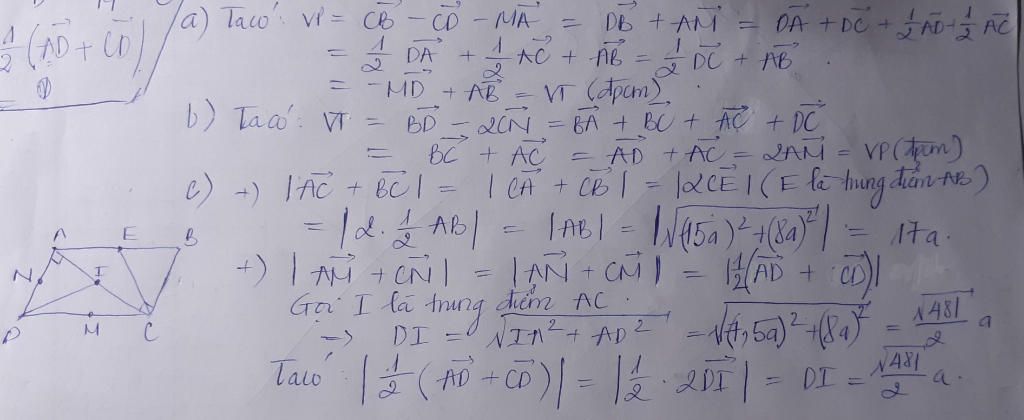 ½(AD→ + CD→)
a) Ta có: VP = CB→ - CD→ - MA→ = DB→ + AM→ = DA→ + DC→ + ½AD→ + ½AC→
= ½DA→ + ½AC→ + AB→ = ½DC→ + AB→.
= -MD→ + AB→ = VT (đpcm).
b) Ta có: VT = BD→ - 2CN→ = BA→ + BC→ + AC→ + DC→
= BC→ + AC→ = AD→ + AC→ = 2AM→ = VP (đpcm)
c) +) |AC→ + BC→| = |CA→ + CB→| = |2CE→| (E là trung điểm AB)
= |2.½AB| = |AB| = |√(15a)² + (8a)²| = 17a.
+) |AM→ + CN→| = |AN→ + CM→| = |½(AD→ + CD→)|
Gọi I là trung điểm AC.
→ DI = √IA² + AD² = √(7,5a)² + (8a)² = √481/2 a
Ta có: |½(AD→ + CD→)| = |½.2DI→| = DI = √481/2 a.
A E B
N I
D M C